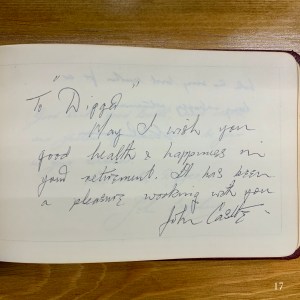 To "Digger"
May I wish you
good health & happiness in
your retirement. It has been
a pleasure working with you
John Castle
17